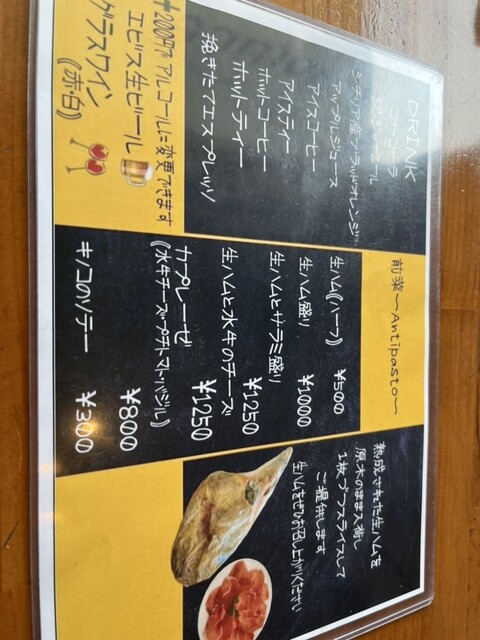 DRINK
コカ・コーラ
ジンジャーエール
シチリア産ブラッドオレンジ
アップルジュース
アイスコーヒー
アイスティー
ホットコーヒー
ホットティー
挽きたてエスプレッソ
+200円でアルコールに変更できます
エビス生ビール
グラスワイン
(赤・白)
前菜〜Antipasto〜
生ハム(ハーフ) ¥500
生ハム盛り ¥1000
生ハムとサラミ盛り ¥1,250
生ハムと水牛のチーズ ¥1,250
カプレーゼ
(水牛チーズ・プチトマト・バジル) ¥800
キノコのソテー ¥300
熟成された生ハムを
原木のまま入荷し
1枚づつスライスして
ご提供します
生ハムをぜひお召し上がりください